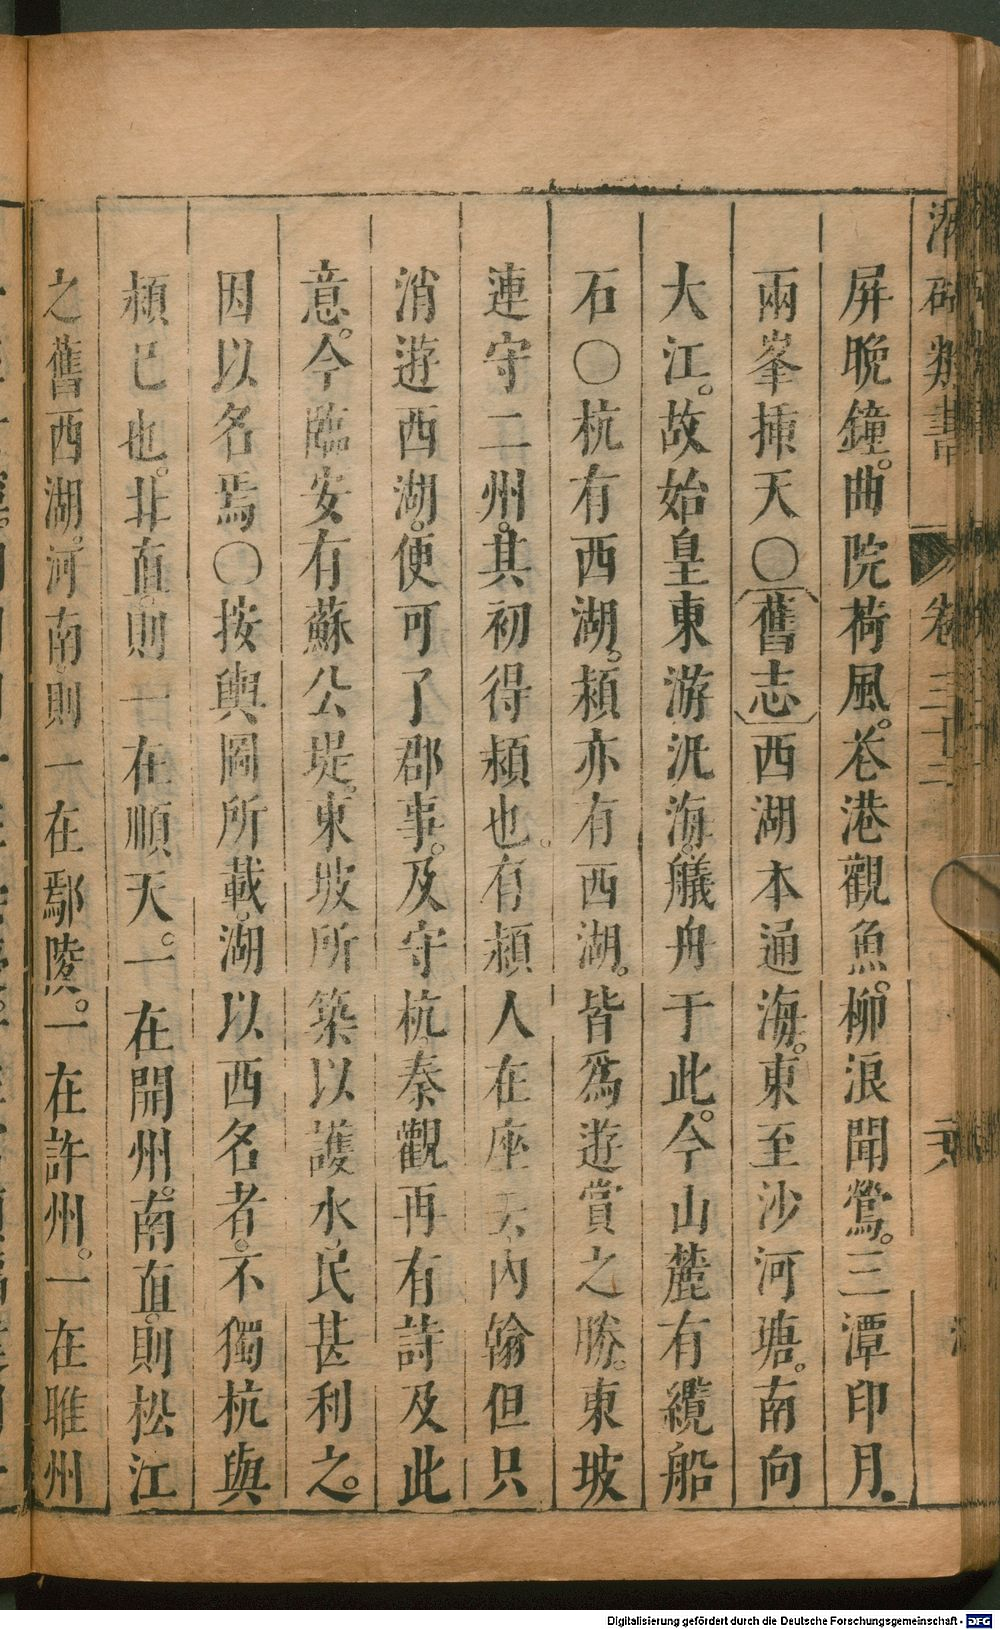 屏晚鐘。曲院荷風。花港觀魚。柳浪聞鶯。三潭印月。
兩峯揷天〇〔舊志〕西湖本通海。東至沙河塘。南向
大江。故始皇東游汎海。艤舟于此。今山麓有纜船
石〇杭有西湖。潁亦有西湖。皆爲遊賞之勝。東坡
連守二州。其初得潁也。有潁人在座云。內翰但只
消遊西湖。便可了郡事。及守杭。秦觀再有詩及此
意。今臨安有蘇公堤。東坡所築以護水。民甚利之。
因以名焉〇按輿圖所載。湖以西名者。不獨杭與
潁已也。北直。則一在順天。一在開州。南直。則松江
之舊西湖。河南。則一在鄢陵。一在許州。一在睢州
類書
卷三十二
Digitalisierung gefördert durch die Deutsche Forschungsgemeinschaft - DFG